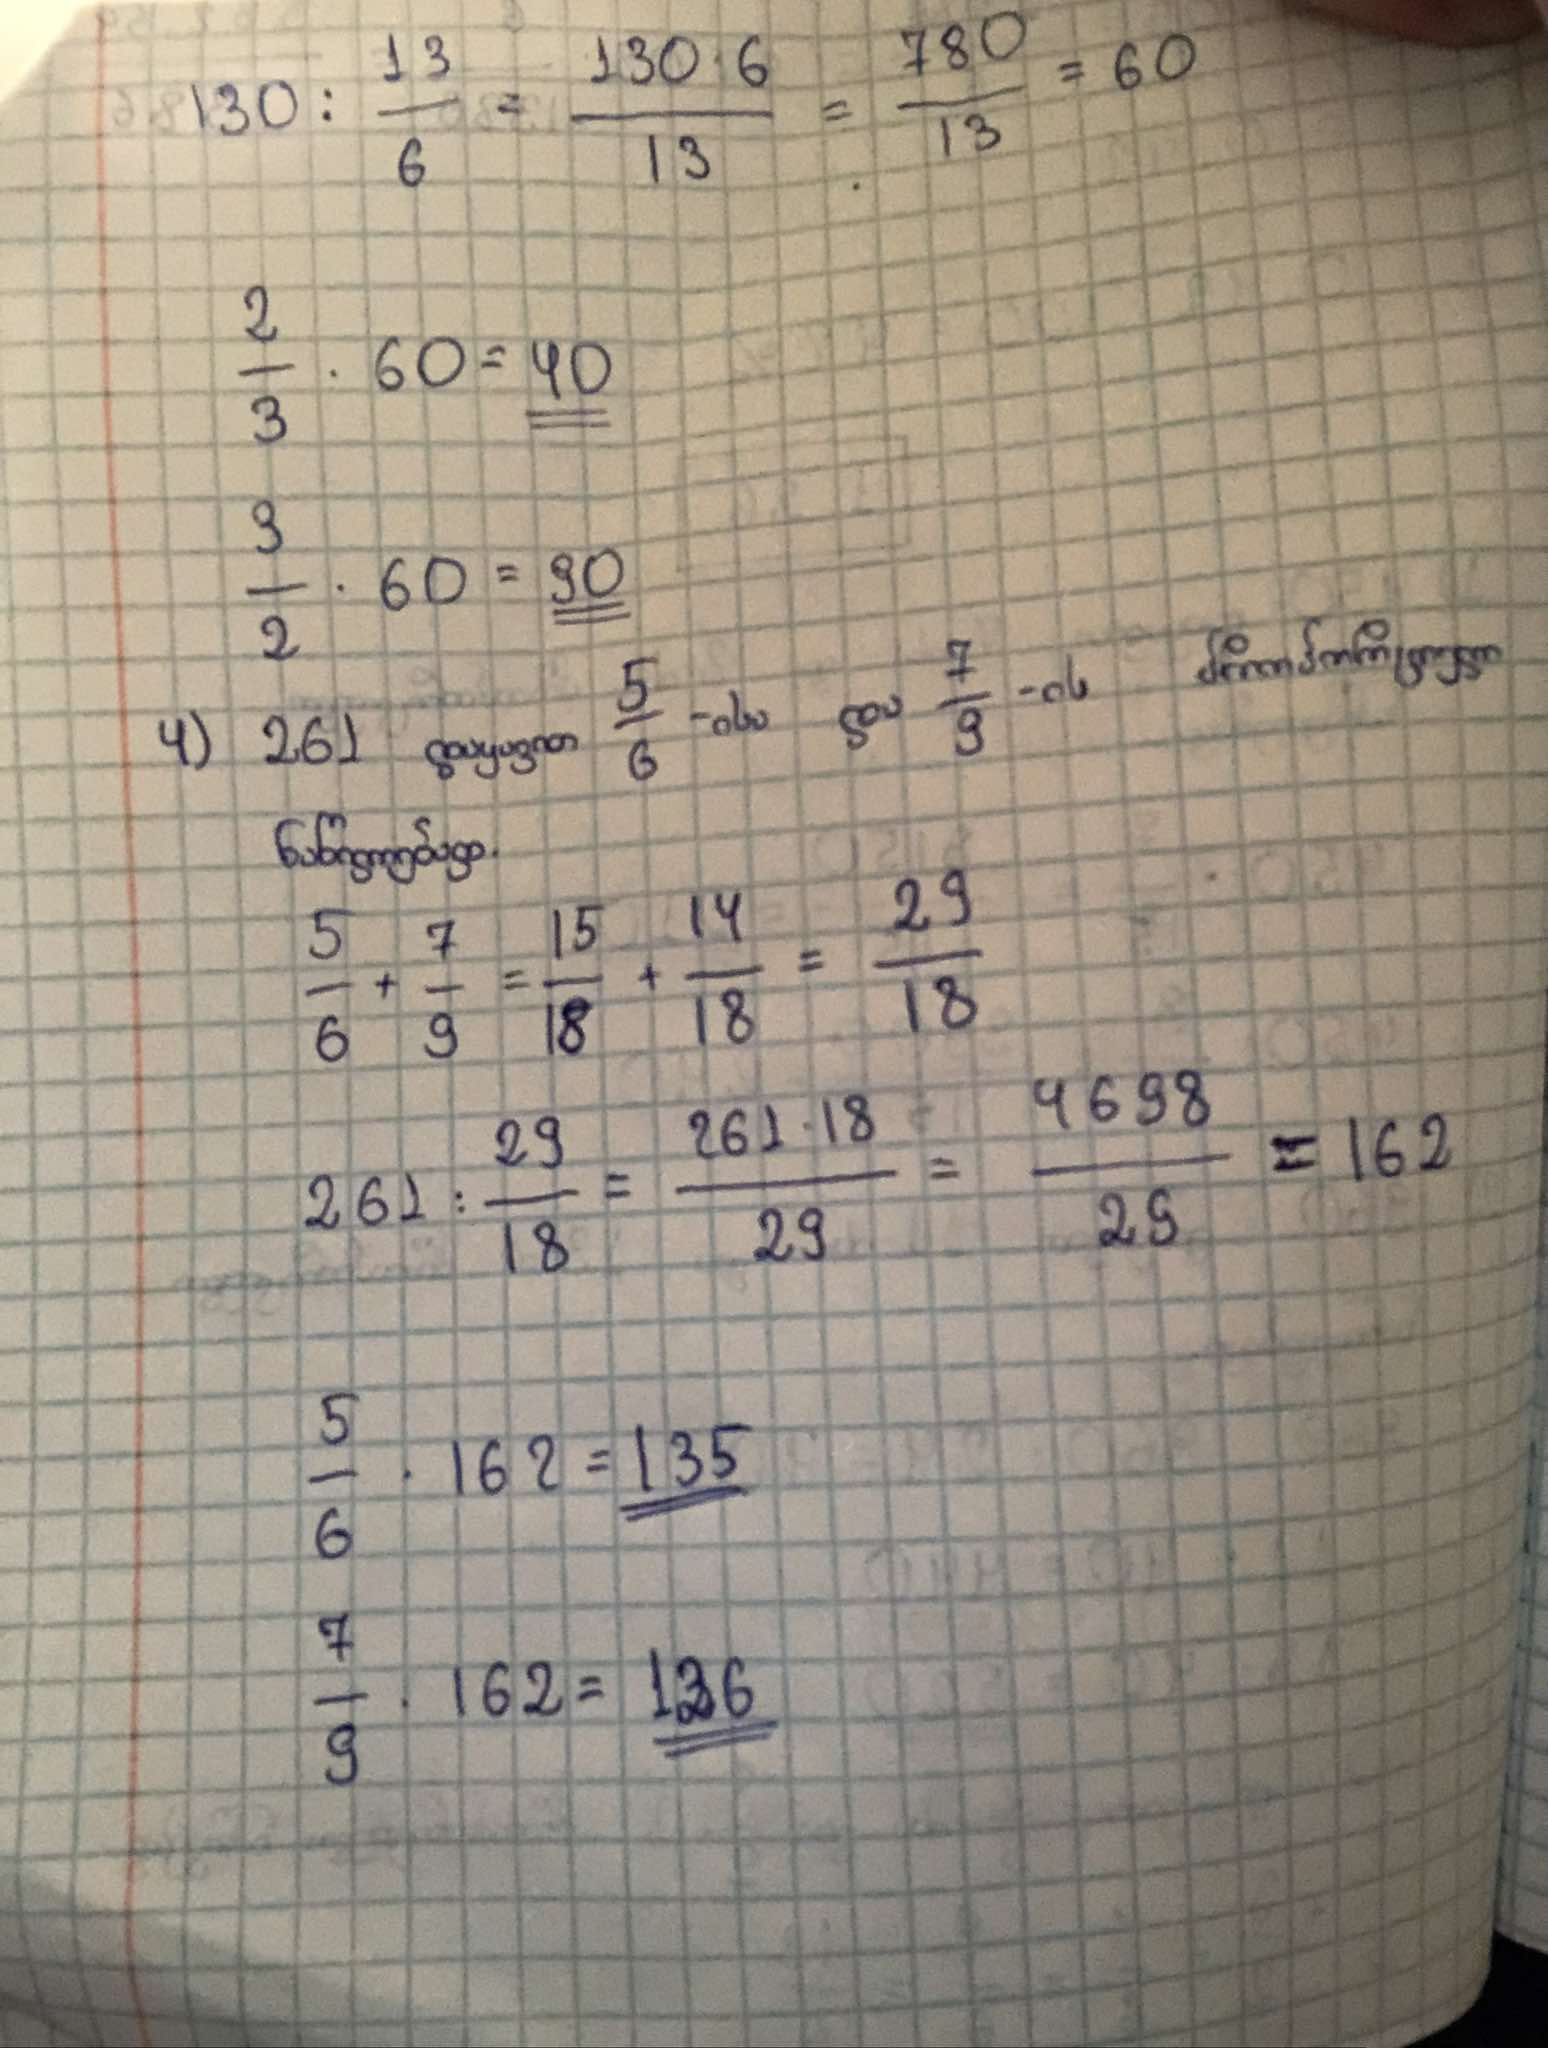 130 : 13/6 = 130·6/13 = 780/13 = 60
2/3 · 60 = 40
3/2 · 60 = 90
4) 261 დავყოთ 5/6 -ისა და 7/9 -ის პროპორციულ
ნაწილებად.
5/6 + 7/9 = 15/18 + 14/18 = 29/18
261 : 29/18 = 261·18/29 = 4698/29 = 162
5/6 · 162 = 135
7/9 · 162 = 126